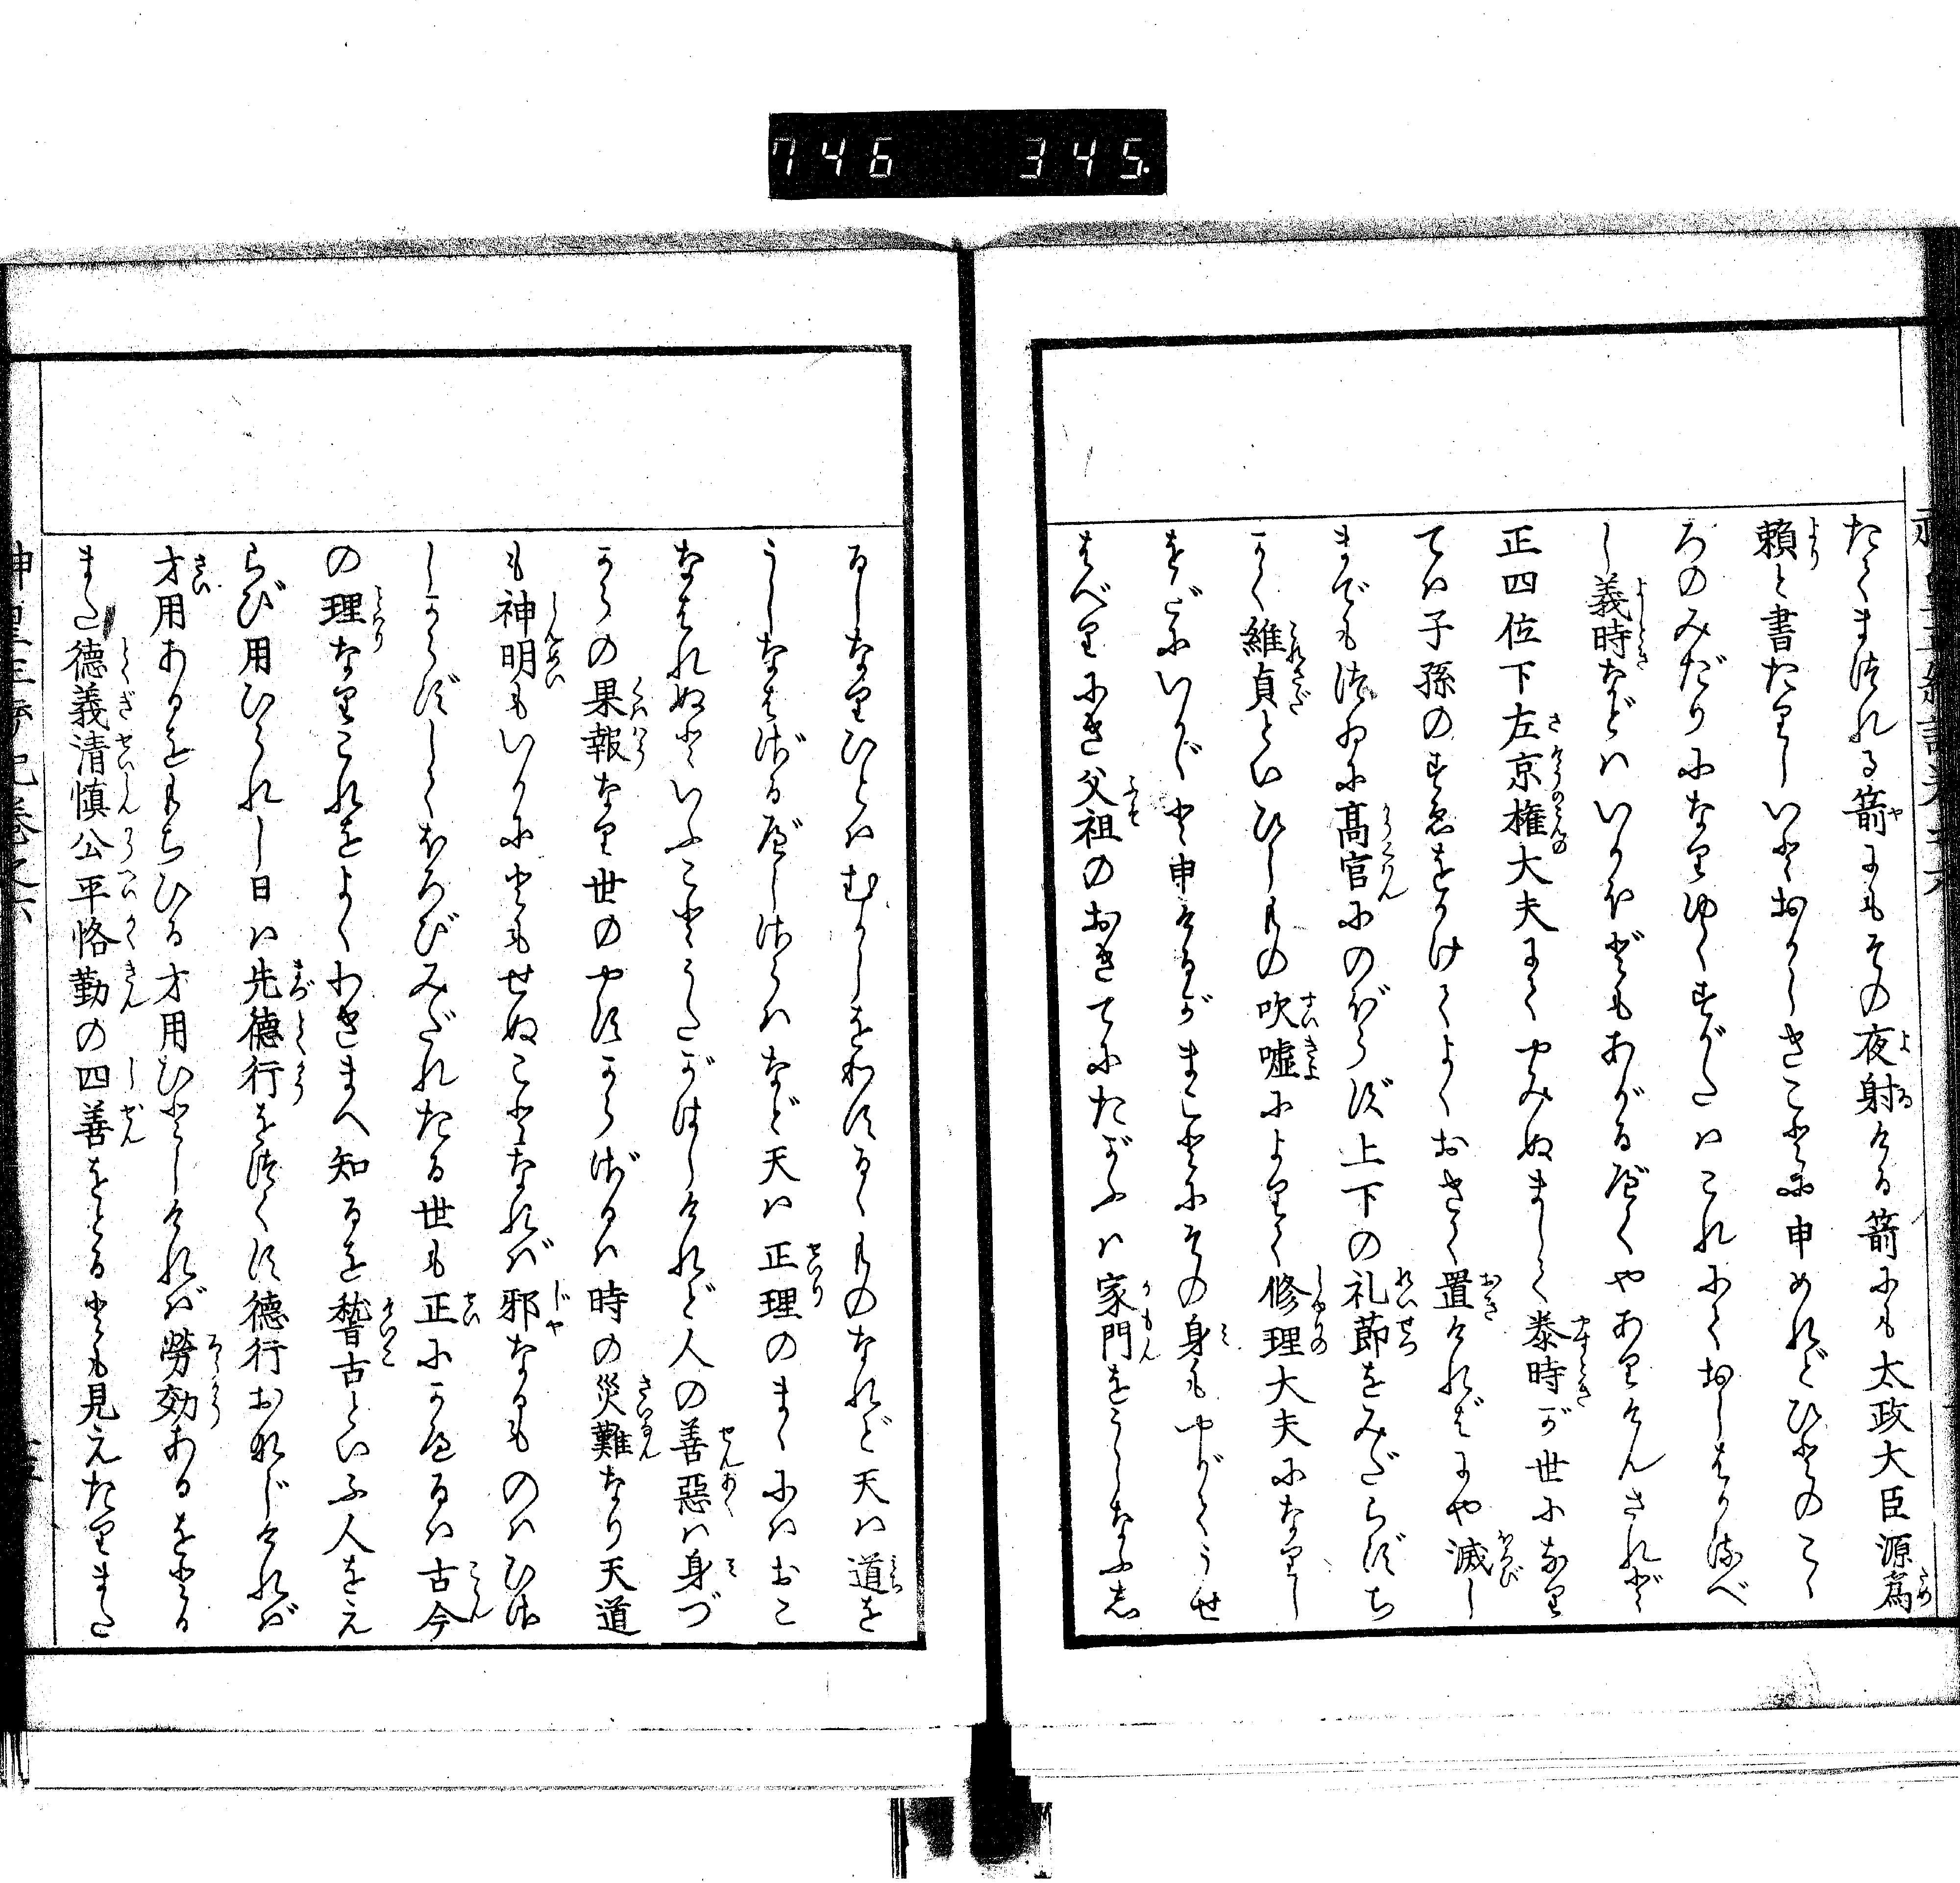 746 345.
たてまつれる箭にもその夜射ける箭にも太政大臣源爲
頼と書たりしいとおかしきことに申めれどひとのこゝ
ろのみだりになりゆくすがたはこれにておしはかるべ
し義時などはいかほどもあがるべくやありけんされど
正四位下左京権大夫にてやみぬまして泰時が世になり
ては子孫のすゑをかけてよくおきて置ければにや滅し
までもつゐに高官にのぼらず上下の礼節をみだらずち
かく維貞といひしもの吹噓によりて修理大夫になりし
をだにいかゞと申けるがまことにその身もやがてうせ
はべりにき父祖のおきてにたがふは家門をうしなふし
るしなりひとはむかしをわするゝものなれど天は道を
うしなはざるべしさらはなど天は正理のまゝにはおこ
なはれぬといふことうたがはしけれど人の善惡は身づ
からの果報なり世のやすからざるは時の災難なり天道
も神明もいかにともせぬことなれば邪なるものはひさ
しからずしてほろびみだれたる世も正にかへるは古今
の理なりこれをよくわきまへ知るを稽古といふ人をえ
らび用ひられし日は先徳行をつくす徳行おなじければ
才用あるをもちひる才用ひとしければ勞効あるをとる
また德義清慎公平恪勤の四善をとるとも見えたりまた